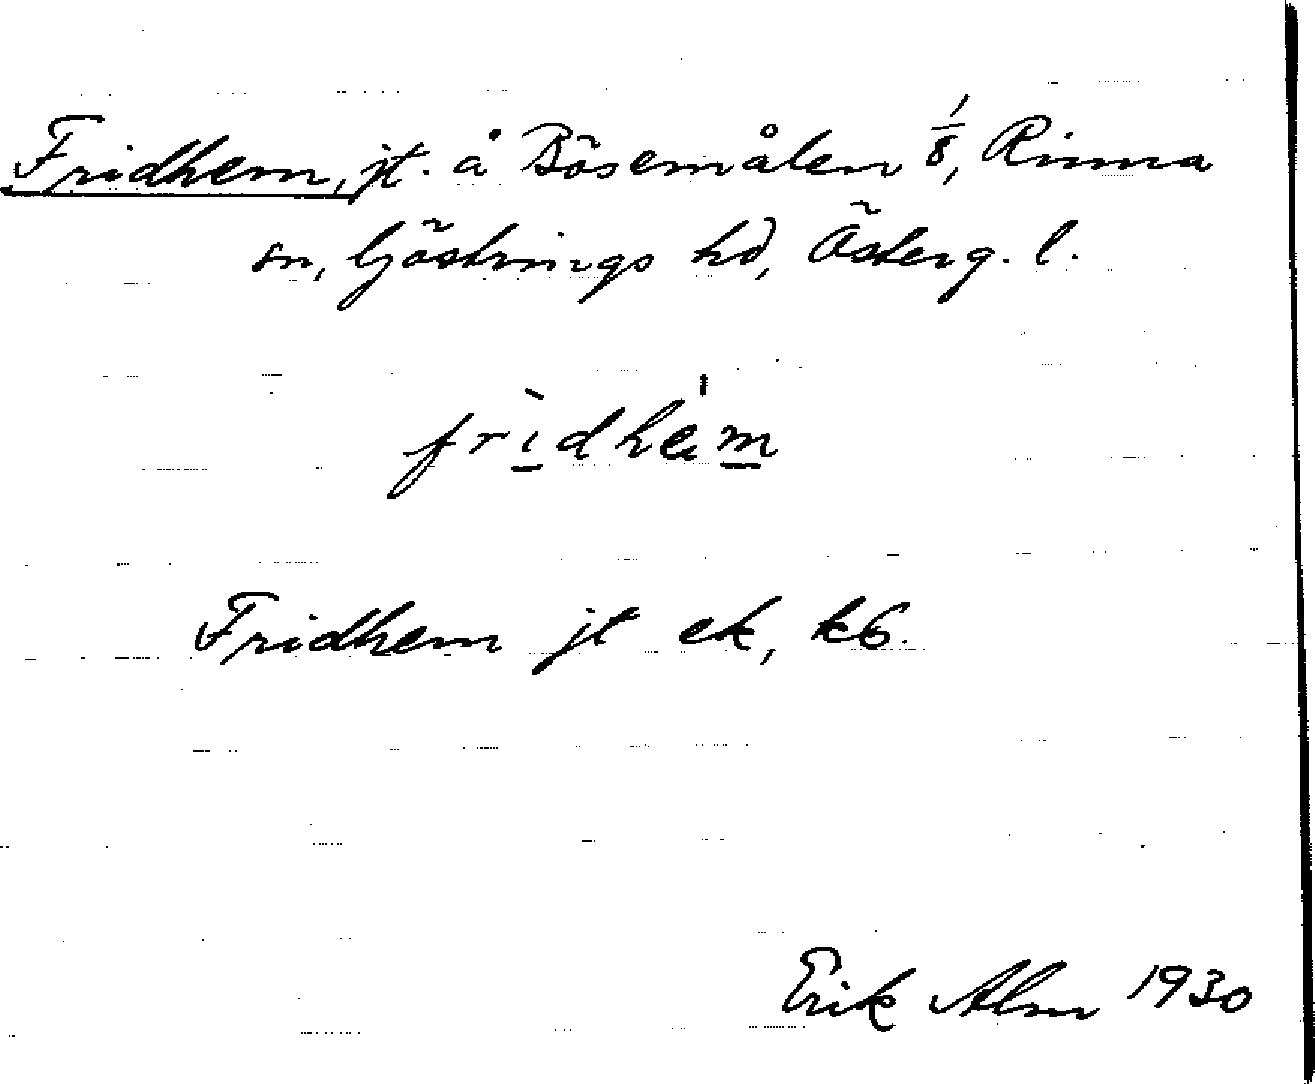 Fridhem, jt. å Bösemålen 1/8, Rinna
sn, Göstrings hd, Österg. l.
fr<u>ì</u>dhe̍<u>m</u>
Fridhem jt ek, k6.
Erik Alm 1930